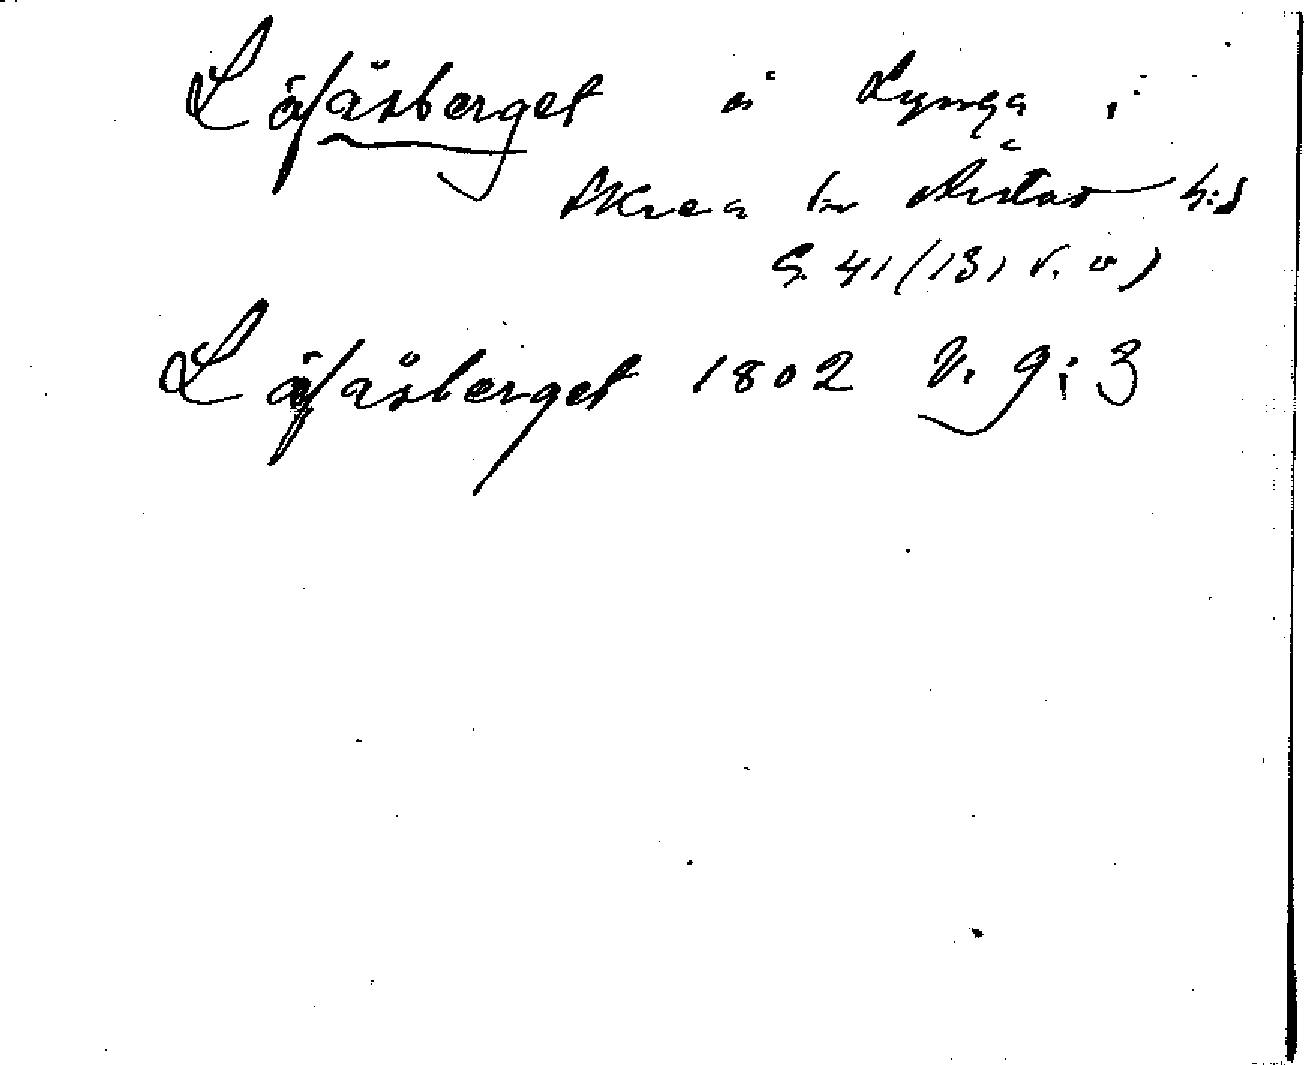 Läfåsberget å Lynga i
Skrea sn Årstad h:d
G. 41 (131 v. o)
Läfåsberget 1802 N. 9:3